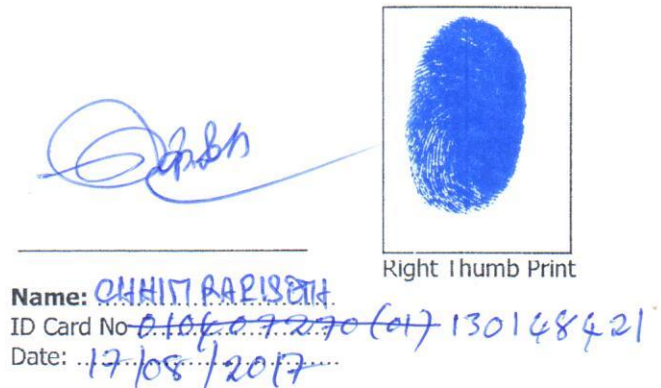 Right Thumb Print
Name: CHHIM RARISETH
ID Card No 010407270 (01) 130148421
Date: 17/08/2017